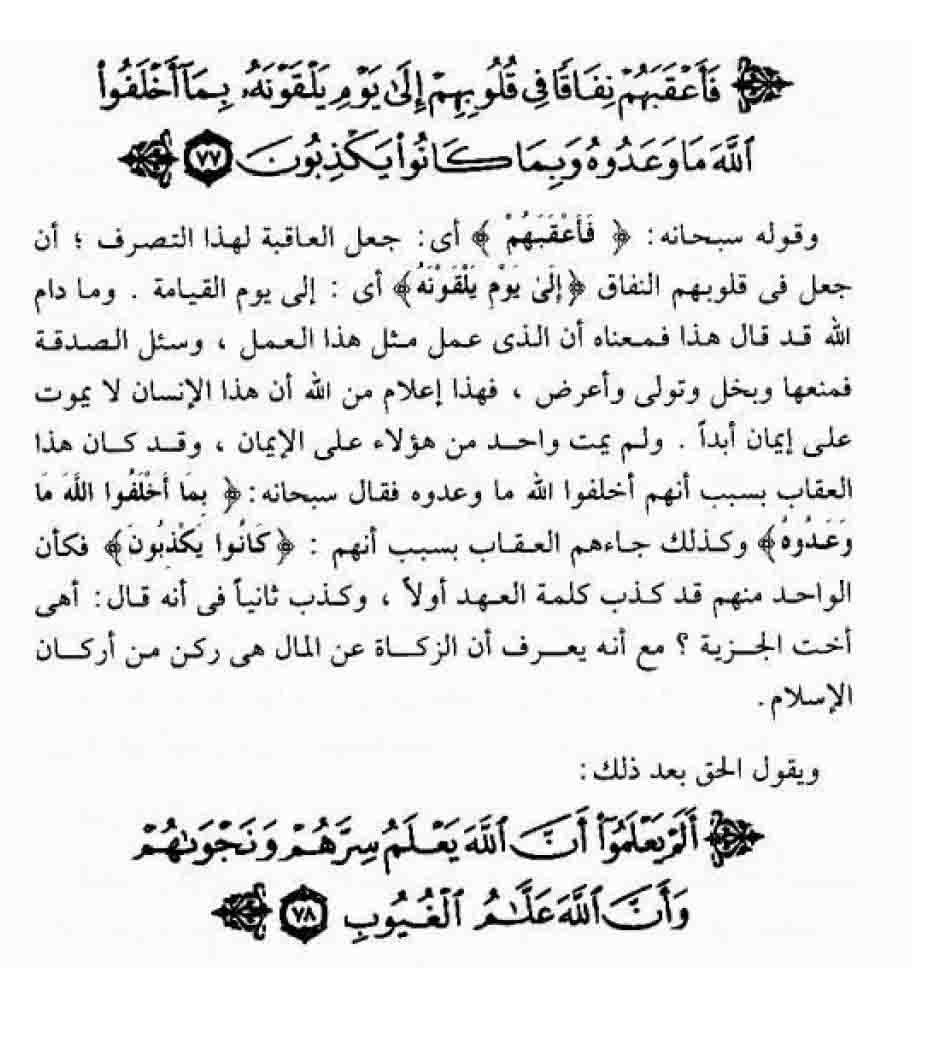 فَأَعْقَبَهُمْ نِفَاقًا فِى قُلُوبِهِمْ إِلَىٰ يَوْمِ يَلْقَوْنَهُۥ بِمَآ أَخْلَفُوا۟
ٱللَّهَ مَا وَعَدُوهُ وَبِمَا كَانُوا۟ يَكْذِبُونَ ٧٧
وقوله سبحانه: ﴿ فَأَعْقَبَهُمْ ﴾ أى: جعل العاقبة لهذا التصرف ؛ أن
جعل فى قلوبهم النفاق ﴿إِلَىٰ يَوْمِ يَلْقَوْنَهُ﴾ أى : إلى يوم القيامة . وما دام
الله قد قال هذا فمعناه أن الذى عمل مثل هذا العمل ، وسئل الصدقة
فمنعها وبخل وتولى وأعرض ، فهذا إعلام من الله أن هذا الإنسان لا يموت
على إيمان أبداً . ولم يمت واحد من هؤلاء على الإيمان ، وقد كان هذا
العقاب بسبب أنهم أخلفوا الله ما وعدوه فقال سبحانه: ﴿ بِمَا أَخْلَفُوا اللَّهَ مَا
وَعَدُوهُ﴾ وكذلك جاءهم العقاب بسبب أنهم : ﴿كَانُوا يَكْذِبُونَ﴾ فكأن
الواحد منهم قد كذب كلمة العهد أولاً ، وكذب ثانياً فى أنه قال: أهى
أخت الجزية ؟ مع أنه يعرف أن الزكاة عن المال هى ركن من أركان
الإسلام .
ويقول الحق بعد ذلك :
أَلَمْ يَعْلَمُوٓا۟ أَنَّ ٱللَّهَ يَعْلَمُ سِرَّهُمْ وَنَجْوَىٰهُمْ
وَأَنَّ ٱللَّهَ عَلَّٰمُ ٱلْغُيُوبِ ٧٨